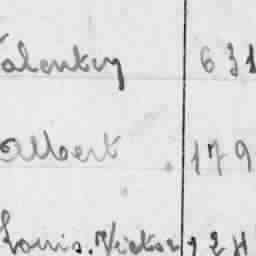 Valentin 631
Albert 179
Louis. Victor 924